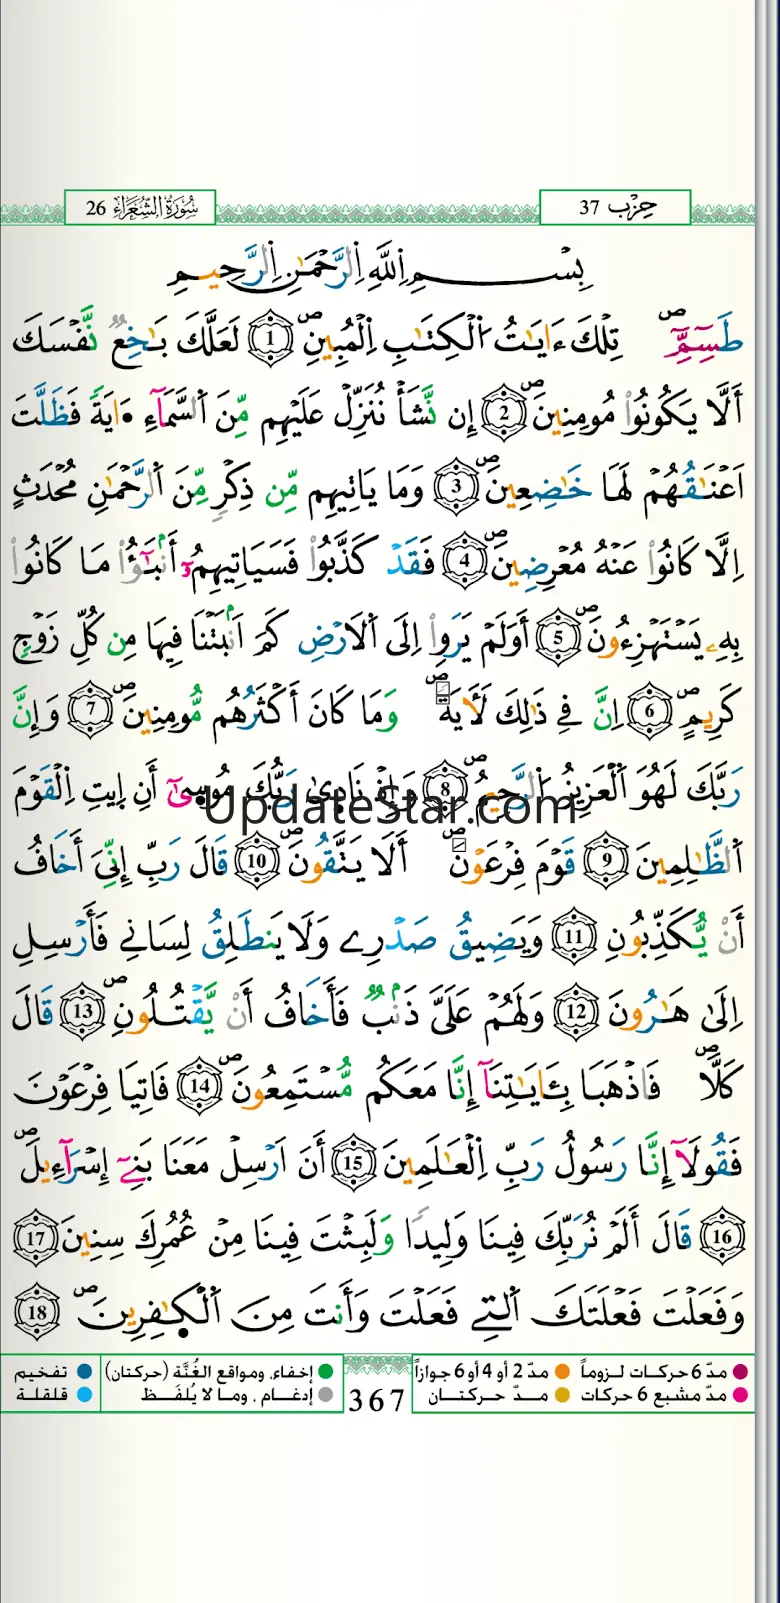 حِزْب 37
سُورَةُ الشُّعَرَاءِ 26
بِسْمِ اِللَّهِ اِلرَّحْمَٰنِ اِلرَّحِيمِ
طَسِٓمِّٓۖ تِلْكَ ءَايَٰتُ اُ۬لْكِتَٰبِ اِ۬لْمُبِينِۖ 1 لَعَلَّكَ بَٰخِعٞ نَّفْسَكَ
أَلَّا يَكُونُواْ مُومِنِينَۖ 2 إِن نَّشَأْ نُنَزِّلْ عَلَيْهِم مِّنَ اَ۬لسَّمَآءِ اَ۬يَةٗ فَظَلَّتَ
اَعْنَٰقُهُمْ لَهَا خَٰضِعِينَۖ 3 وَمَا يَاتِيهِم مِّن ذِكْرٖ مِّنَ اَ۬لرَّحْمَٰنِ مُحْدَثٍ
اِلَّا كَانُواْ عَنْهُ مُعْرِضِينَۖ 4 فَقَدْ كَذَّبُواْ فَسَيَاتِيهِمُۥٓ أَنۢبَٰٓؤُاْ مَا كَانُواْ
بِهِۦ يَسْتَهْزِءُونَۖ 5 أَوَلَمْ يَرَوِاْ اِلَى اَ۬لَارْضِ كَمَ اَنۢبَتْنَا فِيهَا مِن كُلِّ زَوْجٖ
كَرِيمٍۖ 6 اِنَّ فِے ذَٰلِكَ لَأٓيَةٗۖ وَمَا كَانَ أَكْثَرُهُم مُّومِنِينَۖ 7 وَإِنَّ
رَبَّكَ لَهُوَ اَ۬لْعَزِيزُ اُ۬لرَّحِيمُۖ 8 وَإِذْ نَادَىٰ رَبُّكَ مُوسَىٰٓ أَنِ اِيتِ اِ۬لْقَوْمَ
اَ۬لظَّٰلِمِينَ 9 قَوْمَ فِرْعَوْنَۖ أَلَا يَتَّقُونَۖ 10 قَالَ رَبِّ إِنِّيَ أَخَافُ
أَنْ يُّكَذِّبُونِ 11 وَيَضِيقُ صَدْرِے وَلَا يَنطَلِقُ لِسَانِے فَأَرْسِلِ
اِلَىٰ هَٰرُونَ 12 وَلَهُمْ عَلَيَّ ذَنۢبٞ فَأَخَافُ أَنْ يَّقْتُلُونِۖ 13 قَالَ
كَلَّاۖ فَاذْهَبَا بِـَٔايَٰتِنَآ إِنَّا مَعَكُم مُّسْتَمِعُونَۖ 14 فَاتِيَا فِرْعَوْنَ
فَقُولَآ إِنَّا رَسُولُ رَبِّ اِ۬لْعَٰلَمِينَ 15 أَنَ اَرْسِلْ مَعَنَا بَنِےٓ إِسْرَآءِيلَۖ
16 قَالَ أَلَمْ نُرَبِّكَ فِينَا وَلِيدٗا وَلَبِثْتَ فِينَا مِنْ عُمُرِكَ سِنِينَ 17
وَفَعَلْتَ فَعْلَتَكَ اَ۬لتِے فَعَلْتَ وَأَنتَ مِنَ اَ۬لْكٰ۪فِرِينَۖ 18
UpdateStar.com
مدّ 6 حركات لزوماً
مدّ 2 أو 4 أو 6 جوازاً
مدّ مشبع 6 حركات
مدّ حركتان
367
إخفاء، ومواقع الغُنَّة (حركتان)
إدغام، وما لا يُلفَظ
تفخيم
قلقلة